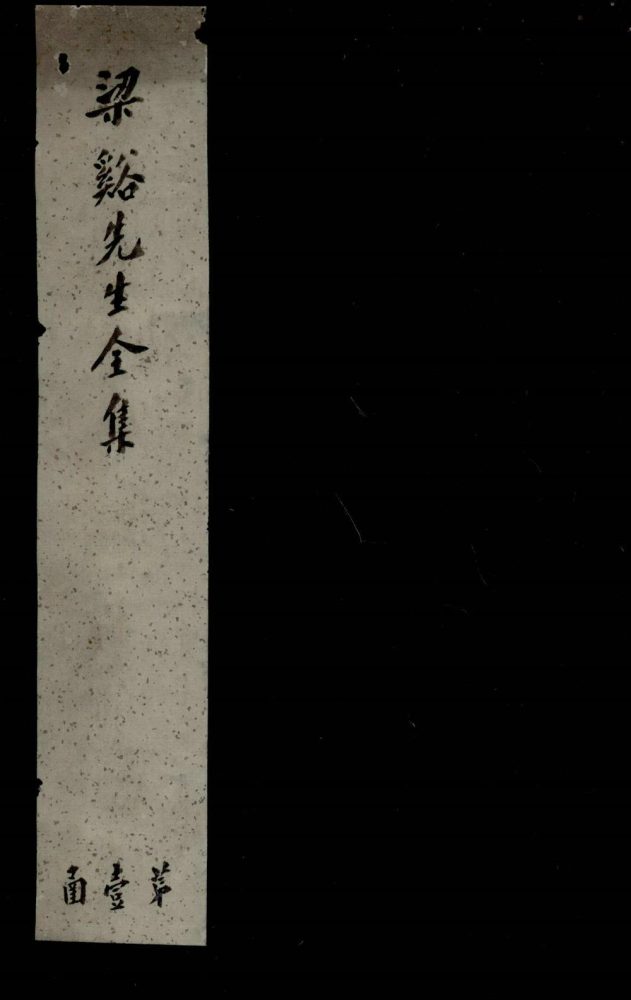 梁谿先生全集
第壹函